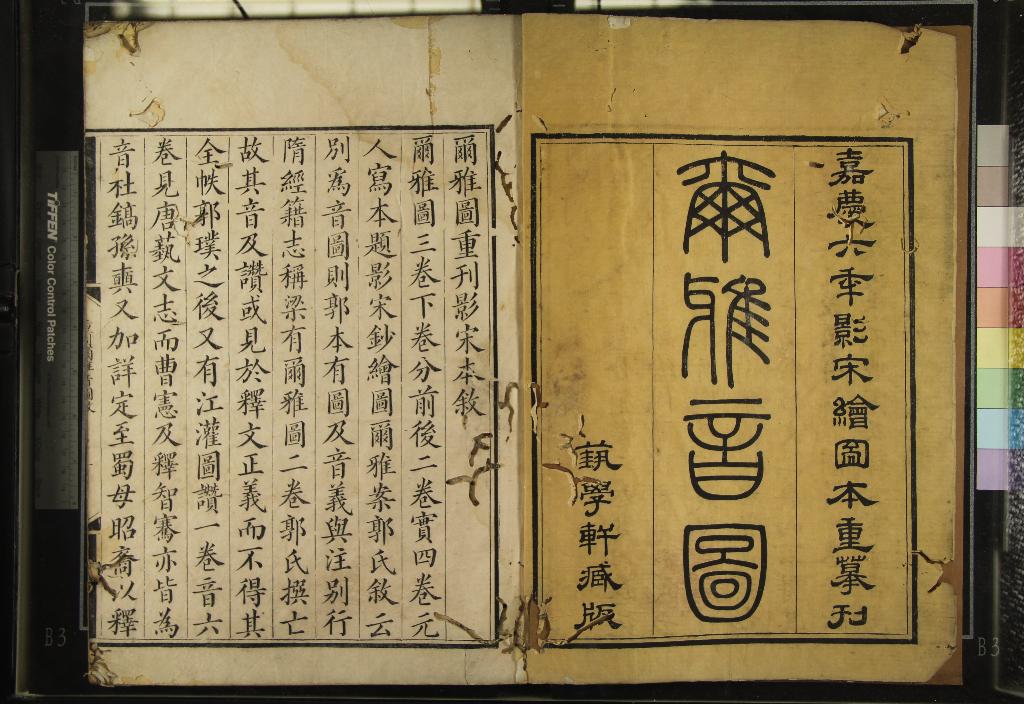 嘉慶六年影宋繪圖本重摹刊
爾雅音圖
藝學軒藏版
爾雅圖重刊影宋本敘
爾雅圖三卷下卷分前後二卷實四卷元
人寫本題影宋鈔繪圖爾雅案郭氏敘云
別爲音圖則郭本有圖及音義與注別行
隋經籍志稱梁有爾雅圖二卷郭氏撰亡
故其音及讚或見於釋文正義而不得其
全帙郭璞之後又有江灌圖讚一卷音六
卷見唐埶文志而曹憲及釋智騫亦皆為
音杜鎬孫奭又加詳定至蜀母昭裔以釋
TIFFEN Color Control Patches
B3
B3